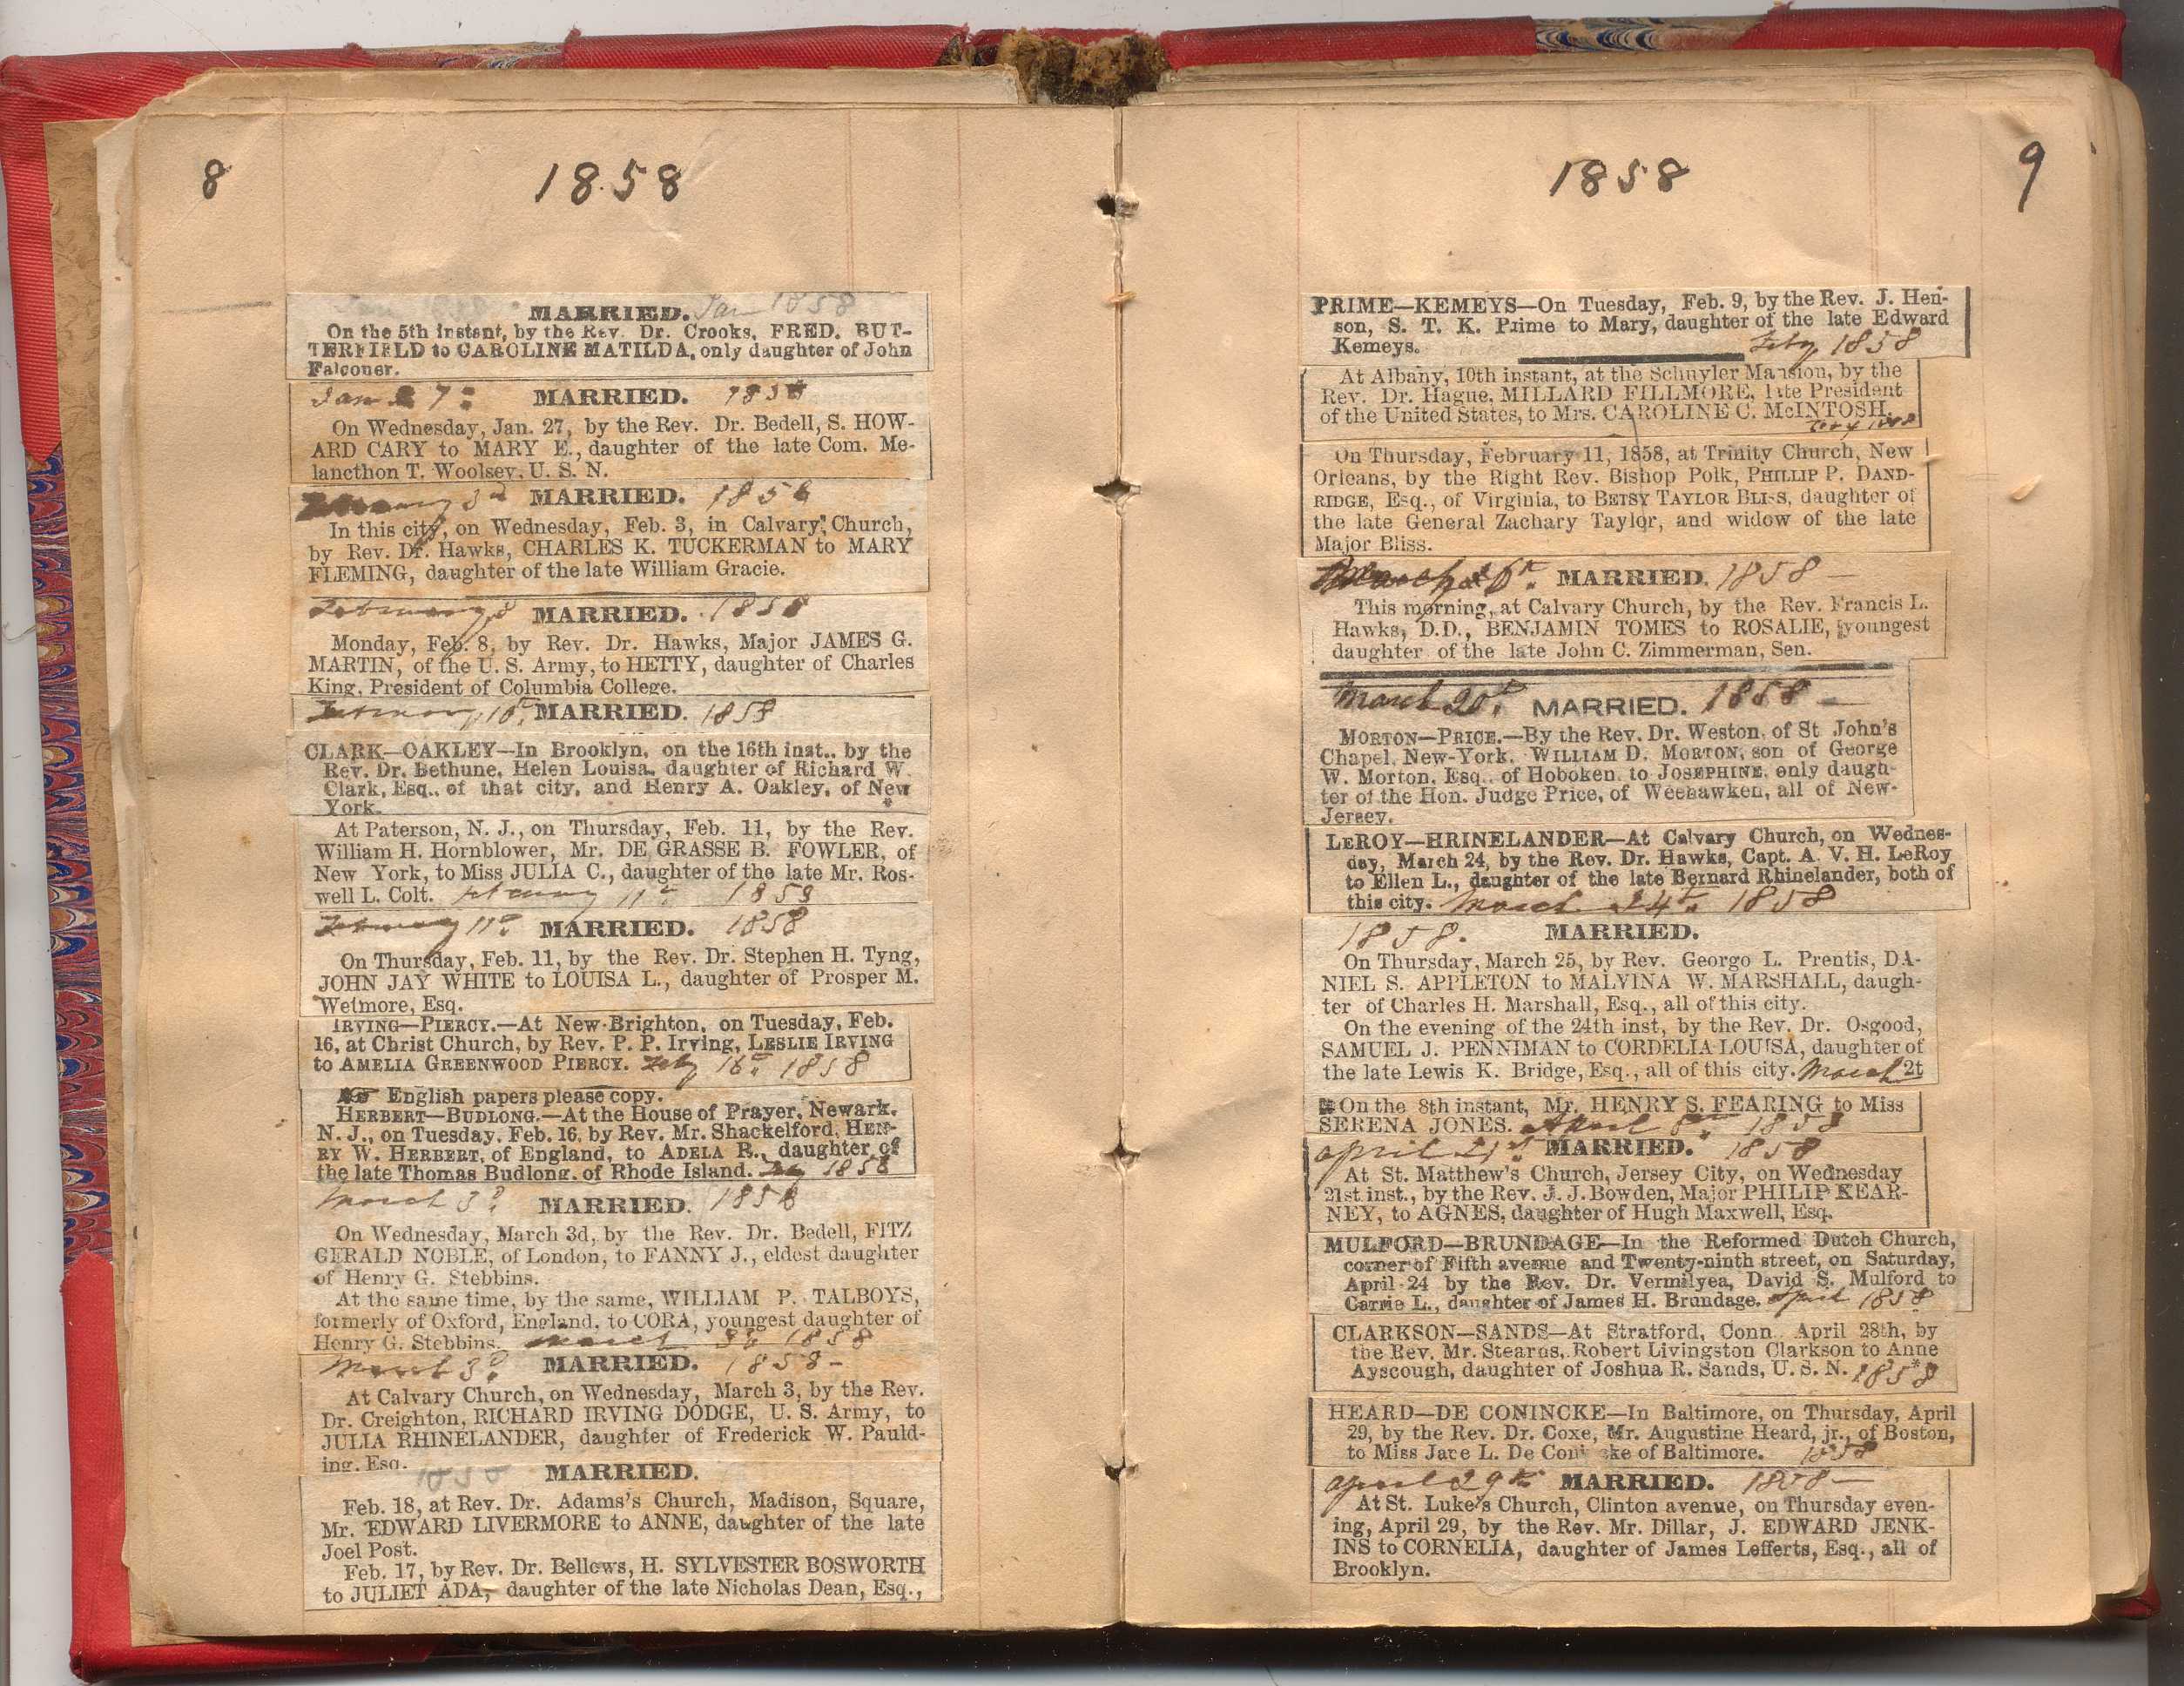 8
1858
MARRIED. Jan 1858
On the 5th instant, by the Rev. Dr. Crooks, FRED. BUT-
TERFIELD to CAROLINE MATILDA, only daughter of John
Falconer.
Jan 27. MARRIED. 1858
On Wednesday, Jan. 27, by the Rev. Dr. Bedell, S. HOW-
ARD CARY to MARY E., daughter of the late Com. Me-
lancthon T. Woolsey, U. S. N.
3d MARRIED. 1858
In this city, on Wednesday, Feb. 3, in Calvary Church,
by Rev. Dr. Hawks, CHARLES K. TUCKERMAN to MARY
FLEMING, daughter of the late William Gracie.
February 8 MARRIED. 1858
Monday, Feb. 8, by Rev. Dr. Hawks, Major JAMES G.
MARTIN, of the U. S. Army, to HETTY, daughter of Charles
King, President of Columbia College.
February 16. MARRIED. 1858
CLARK—OAKLEY—In Brooklyn, on the 16th inst., by the
Rev. Dr. Bethune, Helen Louisa, daughter of Richard W.
Clark, Esq., of that city, and Henry A. Oakley, of New
York.
At Paterson, N. J., on Thursday, Feb. 11, by the Rev.
William H. Hornblower, Mr. DE GRASSE B. FOWLER, of
New York, to Miss JULIA C., daughter of the late Mr. Ros-
well L. Colt. February 11th 1858
February 11th. MARRIED. 1858
On Thursday, Feb. 11, by the Rev. Dr. Stephen H. Tyng,
JOHN JAY WHITE to LOUISA L., daughter of Prosper M.
Wetmore, Esq.
IRVING—PIERCY.—At New-Brighton, on Tuesday, Feb.
16, at Christ Church, by Rev. P. P. Irving, LESLIE IRVING
to AMELIA GREENWOOD PIERCY. Feby 16th 1858
English papers please copy.
HERBERT—BUDLONG.—At the House of Prayer, Newark,
N. J., on Tuesday, Feb. 16, by Rev. Mr. Shackelford, HEN-
RY W. HERBERT, of England, to ADELA R., daughter of
the late Thomas Budlong, of Rhode Island. Feby 1858
March 3d. MARRIED. 1858
On Wednesday, March 3d, by the Rev. Dr. Bedell, FITZ
GERALD NOBLE, of London, to FANNY J., eldest daughter
of Henry G. Stebbins.
At the same time, by the same, WILLIAM P. TALBOYS,
formerly of Oxford, England, to CORA, youngest daughter of
Henry G. Stebbins. March 3d 1858
March 3d. MARRIED. 1858 -
At Calvary Church, on Wednesday, March 3, by the Rev.
Dr. Creighton, RICHARD IRVING DODGE, U. S. Army, to
JULIA RHINELANDER, daughter of Frederick W. Pauld-
ing, Esq.
1858 MARRIED.
Feb. 18, at Rev. Dr. Adams's Church, Madison, Square,
Mr. EDWARD LIVERMORE to ANNE, daughter of the late
Joel Post.
Feb. 17, by Rev. Dr. Bellows, H. SYLVESTER BOSWORTH
to JULIET ADA, daughter of the late Nicholas Dean, Esq.,
1858
9
PRIME—KEMEYS—On Tuesday, Feb. 9, by the Rev. J. Hen-
son, S. T. K. Prime to Mary, daughter of the late Edward
Kemeys. Feby 1858
At Albany, 10th instant, at the Schuyler Mansion, by the
Rev. Dr. Hague, MILLARD FILLMORE, late President
of the United States, to Mrs. CAROLINE C. McINTOSH.
Feby 1858
On Thursday, February 11, 1858, at Trinity Church, New
Orleans, by the Right Rev. Bishop Polk, PHILLIP P. DAND-
RIDGE, Esq., of Virginia, to BETSY TAYLOR BLISS, daughter of
the late General Zachary Taylor, and widow of the late
Major Bliss.
MARRIED. 1858 —
This morning, at Calvary Church, by the Rev. Francis L.
Hawks, D.D., BENJAMIN TOMES to ROSALIE, youngest
daughter of the late John C. Zimmerman, Sen.
March 20th. MARRIED. 1858 —
MORTON—PRICE.—By the Rev. Dr. Weston, of St John's
Chapel, New-York, WILLIAM D. MORTON, son of George
W. Morton, Esq., of Hoboken, to JOSEPHINE, only daugh-
ter of the Hon. Judge Price, of Weehawken, all of New-
Jersey.
LEROY—HRINELANDER—At Calvary Church, on Wednes-
day, March 24, by the Rev. Dr. Hawks, Capt. A. V. H. LeRoy
to Ellen L., daughter of the late Bernard Rhinelander, both of
this city. March 24th. 1858
1858. MARRIED.
On Thursday, March 25, by Rev. Georgo L. Prentis, DA-
NIEL S. APPLETON to MALVINA W. MARSHALL, daugh-
ter of Charles H. Marshall, Esq., all of this city.
On the evening of the 24th inst, by the Rev. Dr. Osgood,
SAMUEL J. PENNIMAN to CORDELIA LOUISA, daughter of
the late Lewis K. Bridge, Esq., all of this city. March
On the 8th instant, Mr. HENRY S. FEARING to Miss
SERENA JONES. April 8th. 1858
April 21st. MARRIED. 1858
At St. Matthew's Church, Jersey City, on Wednesday
21st inst., by the Rev. J. J. Bowden, Major PHILIP KEAR-
NEY, to AGNES, daughter of Hugh Maxwell, Esq.
MULFORD—BRUNDAGE—In the Reformed Dutch Church,
corner of Fifth avenue and Twenty-ninth street, on Saturday,
April 24 by the Rev. Dr. Vermilyea, David S. Mulford to
Carrie L., daughter of James H. Brundage. April 1858
CLARKSON—SANDS—At Stratford, Conn. April 28th, by
the Rev. Mr. Stearns, Robert Livingston Clarkson to Anne
Ayscough, daughter of Joshua R. Sands, U. S. N. 1858
HEARD—DE CONINCKE—In Baltimore, on Thursday, April
29, by the Rev. Dr. Coxe, Mr. Augustine Heard, jr., of Boston,
to Miss Jane L. De Con cke of Baltimore. 1858
April 29th MARRIED. 1858 —
At St. Luke's Church, Clinton avenue, on Thursday even-
ing, April 29, by the Rev. Mr. Dillar, J. EDWARD JENK-
INS to CORNELIA, daughter of James Lefferts, Esq., all of
Brooklyn.